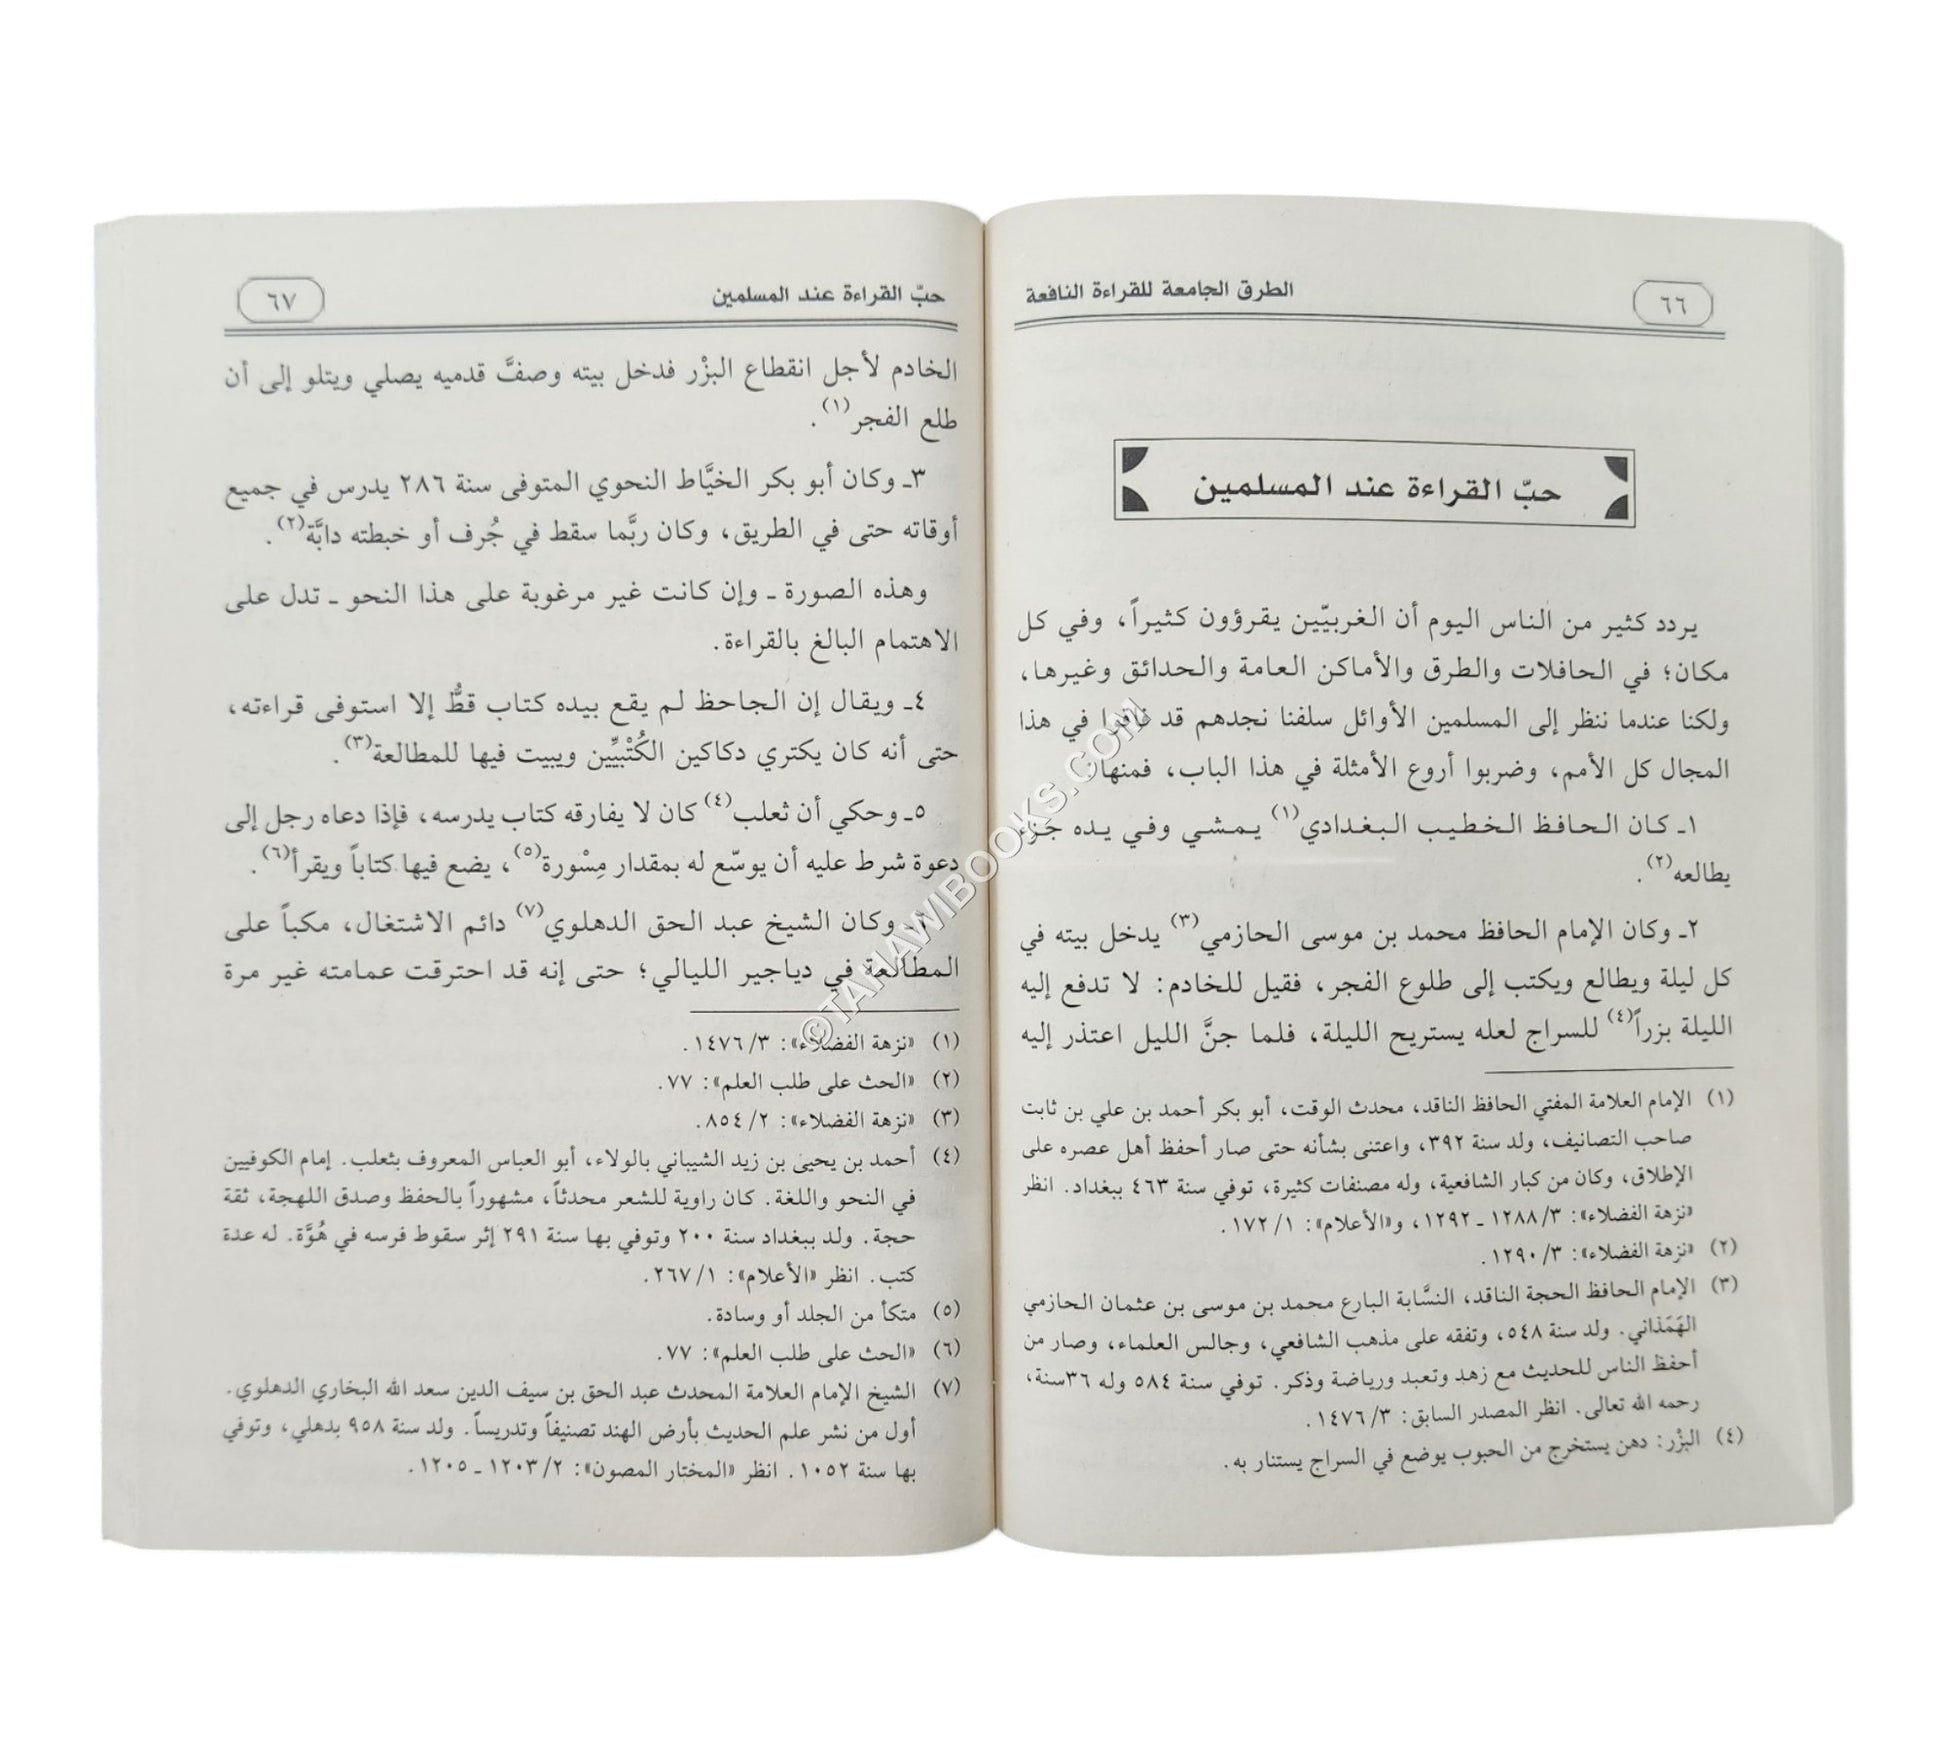 ٦٦
الطرق الجامعة للقراءة النافعة
حبّ القراءة عند المسلمين
يردد كثير من الناس اليوم أن الغربيّين يقرؤون كثيراً، وفي كل
مكان؛ في الحافلات والطرق والأماكن العامة والحدائق وغيرها،
ولكنا عندما ننظر إلى المسلمين الأوائل سلفنا نجدهم قد فاقوا في هذا
المجال كل الأمم، وضربوا أروع الأمثلة في هذا الباب، فمنها:
١ـ كان الحافظ الخطيب البغدادي(١) يمشي وفي يده جزء
يطالعه(٢).
٢ـ وكان الإمام الحافظ محمد بن موسى الحازمي(٣) يدخل بيته في
كل ليلة ويطالع ويكتب إلى طلوع الفجر، فقيل للخادم: لا تدفع إليه
الليلة بزراً(٤) للسراج لعله يستريح الليلة، فلما جنَّ الليل اعتذر إليه
(١) الإمام العلامة المفتي الحافظ الناقد، محدث الوقت، أبو بكر أحمد بن علي بن ثابت
صاحب التصانيف، ولد سنة ٣٩٢، واعتنى بشأنه حتى صار أحفظ أهل عصره على
الإطلاق، وكان من كبار الشافعية، وله مصنفات كثيرة، توفي سنة ٤٦٣ ببغداد. انظر
«نزهة الفضلاء»: ٣/ ١٢٨٨ ـ ١٢٩٢، و«الأعلام»: ١/ ١٧٢.
(٢) «نزهة الفضلاء»: ٣/ ١٢٩٠.
(٣) الإمام الحافظ الحجة الناقد، النسَّابة البارع محمد بن موسى بن عثمان الحازمي
الهَمَذاني. ولد سنة ٥٤٨، وتفقه على مذهب الشافعي، وجالس العلماء، وصار من
أحفظ الناس للحديث مع زهد وتعبد ورياضة وذكر. توفي سنة ٥٨٤ وله ٣٦سنة،
رحمه الله تعالى. انظر المصدر السابق: ٣/ ١٤٧٦.
(٤) البزْر: دهن يستخرج من الحبوب يوضع في السراج يستنار به.
حبّ القراءة عند المسلمين
٦٧
الخادم لأجل انقطاع البزْر فدخل بيته وصفَّ قدميه يصلي ويتلو إلى أن
طلع الفجر(١).
٣ـ وكان أبو بكر الخيَّاط النحوي المتوفى سنة ٢٨٦ يدرس في جميع
أوقاته حتى في الطريق، وكان ربَّما سقط في جُرف أو خبطته دابَّة(٢).
وهذه الصورة ـ وإن كانت غير مرغوبة على هذا النحو ـ تدل على
الاهتمام البالغ بالقراءة.
٤ـ ويقال إن الجاحظ لم يقع بيده كتاب قطُّ إلا استوفى قراءته،
حتى أنه كان يكتري دكاكين الكُتْبيِّين ويبيت فيها للمطالعة(٣).
٥ـ وحكي أن ثعلب(٤) كان لا يفارقه كتاب يدرسه، فإذا دعاه رجل إلى
دعوة شرط عليه أن يوسّع له بمقدار مِسْورة(٥)، يضع فيها كتاباً ويقرأ(٦).
وكان الشيخ عبد الحق الدهلوي(٧) دائم الاشتغال، مكباً على
المطالعة في دياجير الليالي؛ حتى إنه قد احترقت عمامته غير مرة
(١) «نزهة الفضلاء»: ٣/ ١٤٧٦.
(٢) «الحث على طلب العلم»: ٧٧.
(٣) «نزهة الفضلاء»: ٢/ ٨٥٤.
(٤) أحمد بن يحيى بن زيد الشيباني بالولاء، أبو العباس المعروف بثعلب. إمام الكوفيين
في النحو واللغة. كان راوية للشعر محدثاً، مشهوراً بالحفظ وصدق اللهجة، ثقة
حجة. ولد ببغداد سنة ٢٠٠ وتوفي بها سنة ٢٩١ إثر سقوط فرسه في هُوَّة. له عدة
كتب. انظر «الأعلام»: ١/ ٢٦٧.
(٥) متكأ من الجلد أو وسادة.
(٦) «الحث على طلب العلم»: ٧٧.
(٧) الشيخ الإمام العلامة المحدث عبد الحق بن سيف الدين سعد الله البخاري الدهلوي.
أول من نشر علم الحديث بأرض الهند تصنيفاً وتدريساً. ولد سنة ٩٥٨ بدهلي، وتوفي
بها سنة ١٠٥٢. انظر «المختار المصون»: ٢/ ١٢٠٣ ـ ١٢٠٥.
©TAHAWIBOOKS.COM